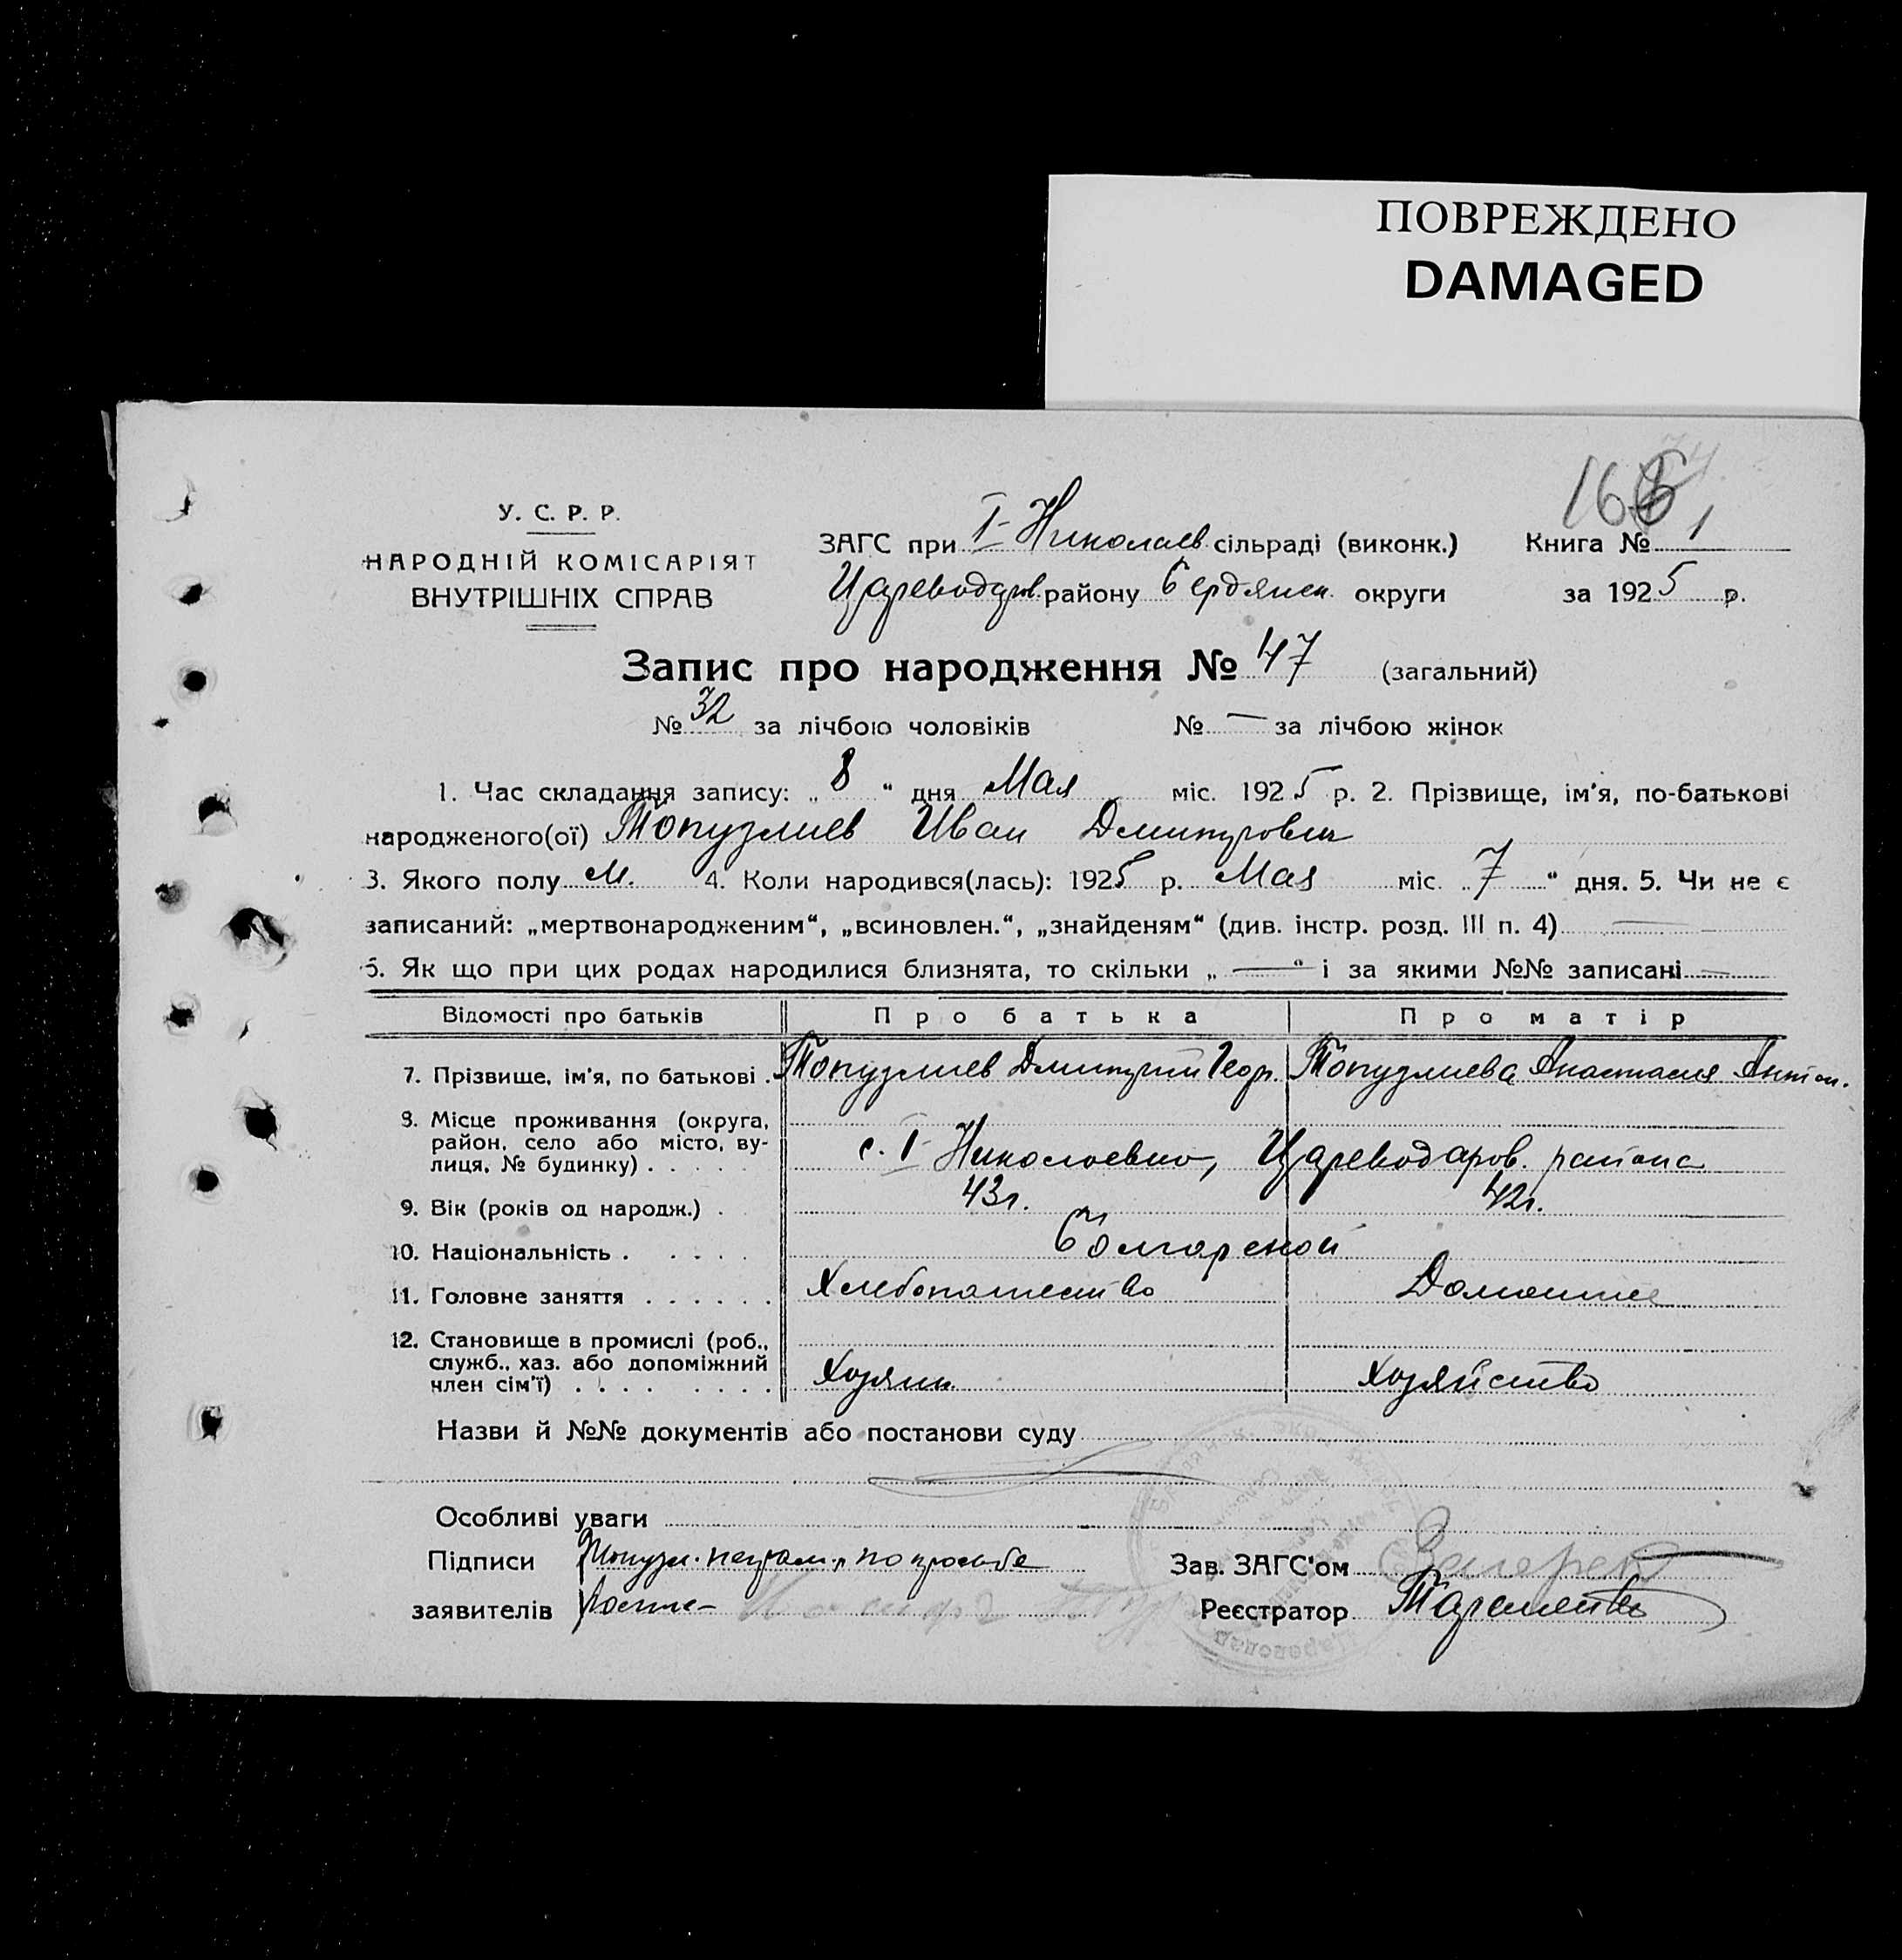 ПОВРЕЖДЕНО
DAMAGED
У. С. Р. Р.
НАРОДНІЙ КОМІСАРІЯТ
ВНУТРІШНІХ СПРАВ
ЗАГС при I Николаев сільраді (виконк.) Книга № 1
Цареводаров. району Бердянск. округи за 1925 р.
Запис про народження № 47 (загальний)
№ 32 за лічбою чоловіків № — за лічбою жінок
1. Час складання запису: „ 8 “ дня Мая міс. 1925 р. 2. Прізвище, ім'я, по-батькові
народженого(ої) Топузлиев Иван Дмитрович
3. Якого полу м. 4. Коли народився(лась): 1925 р. Мая міс. „ 7 “ дня. 5. Чи не є
записаний: „мертвонародженим“, „всиновлен.“, „знайденям“ (див. інстр. розд. III п. 4) —
6. Як що при цих родах народилися близнята, то скільки „ — “ і за якими №№ записані —
Відомості про батьків Про батька Про матір
7. Прізвище, ім'я, по батькові . Топузлиев Дмитрий Геор. Топузлиева Анастасия Антон.
8. Місце проживання (округа,
район, село або місто, ву-
лиця, № будинку) . . . . . с. I Николаевка, Цареводаров. района
9. Вік (років од народж.) . 43 г. 42 г.
10. Національність . . . . . Болгарской
11. Головне заняття . . . . . . Хлебопашество Домашнее
12. Становище в промислі (роб.,
служб., хаз. або допоміжний
член сім'ї) . . . . . . . . Хозяин Хозяйство
Назви й №№ документів або постанови суду
Особливі уваги
Підписи Топузл. неграм., по просьбе Зав. ЗАГС'ом
заявителів Реєстратор